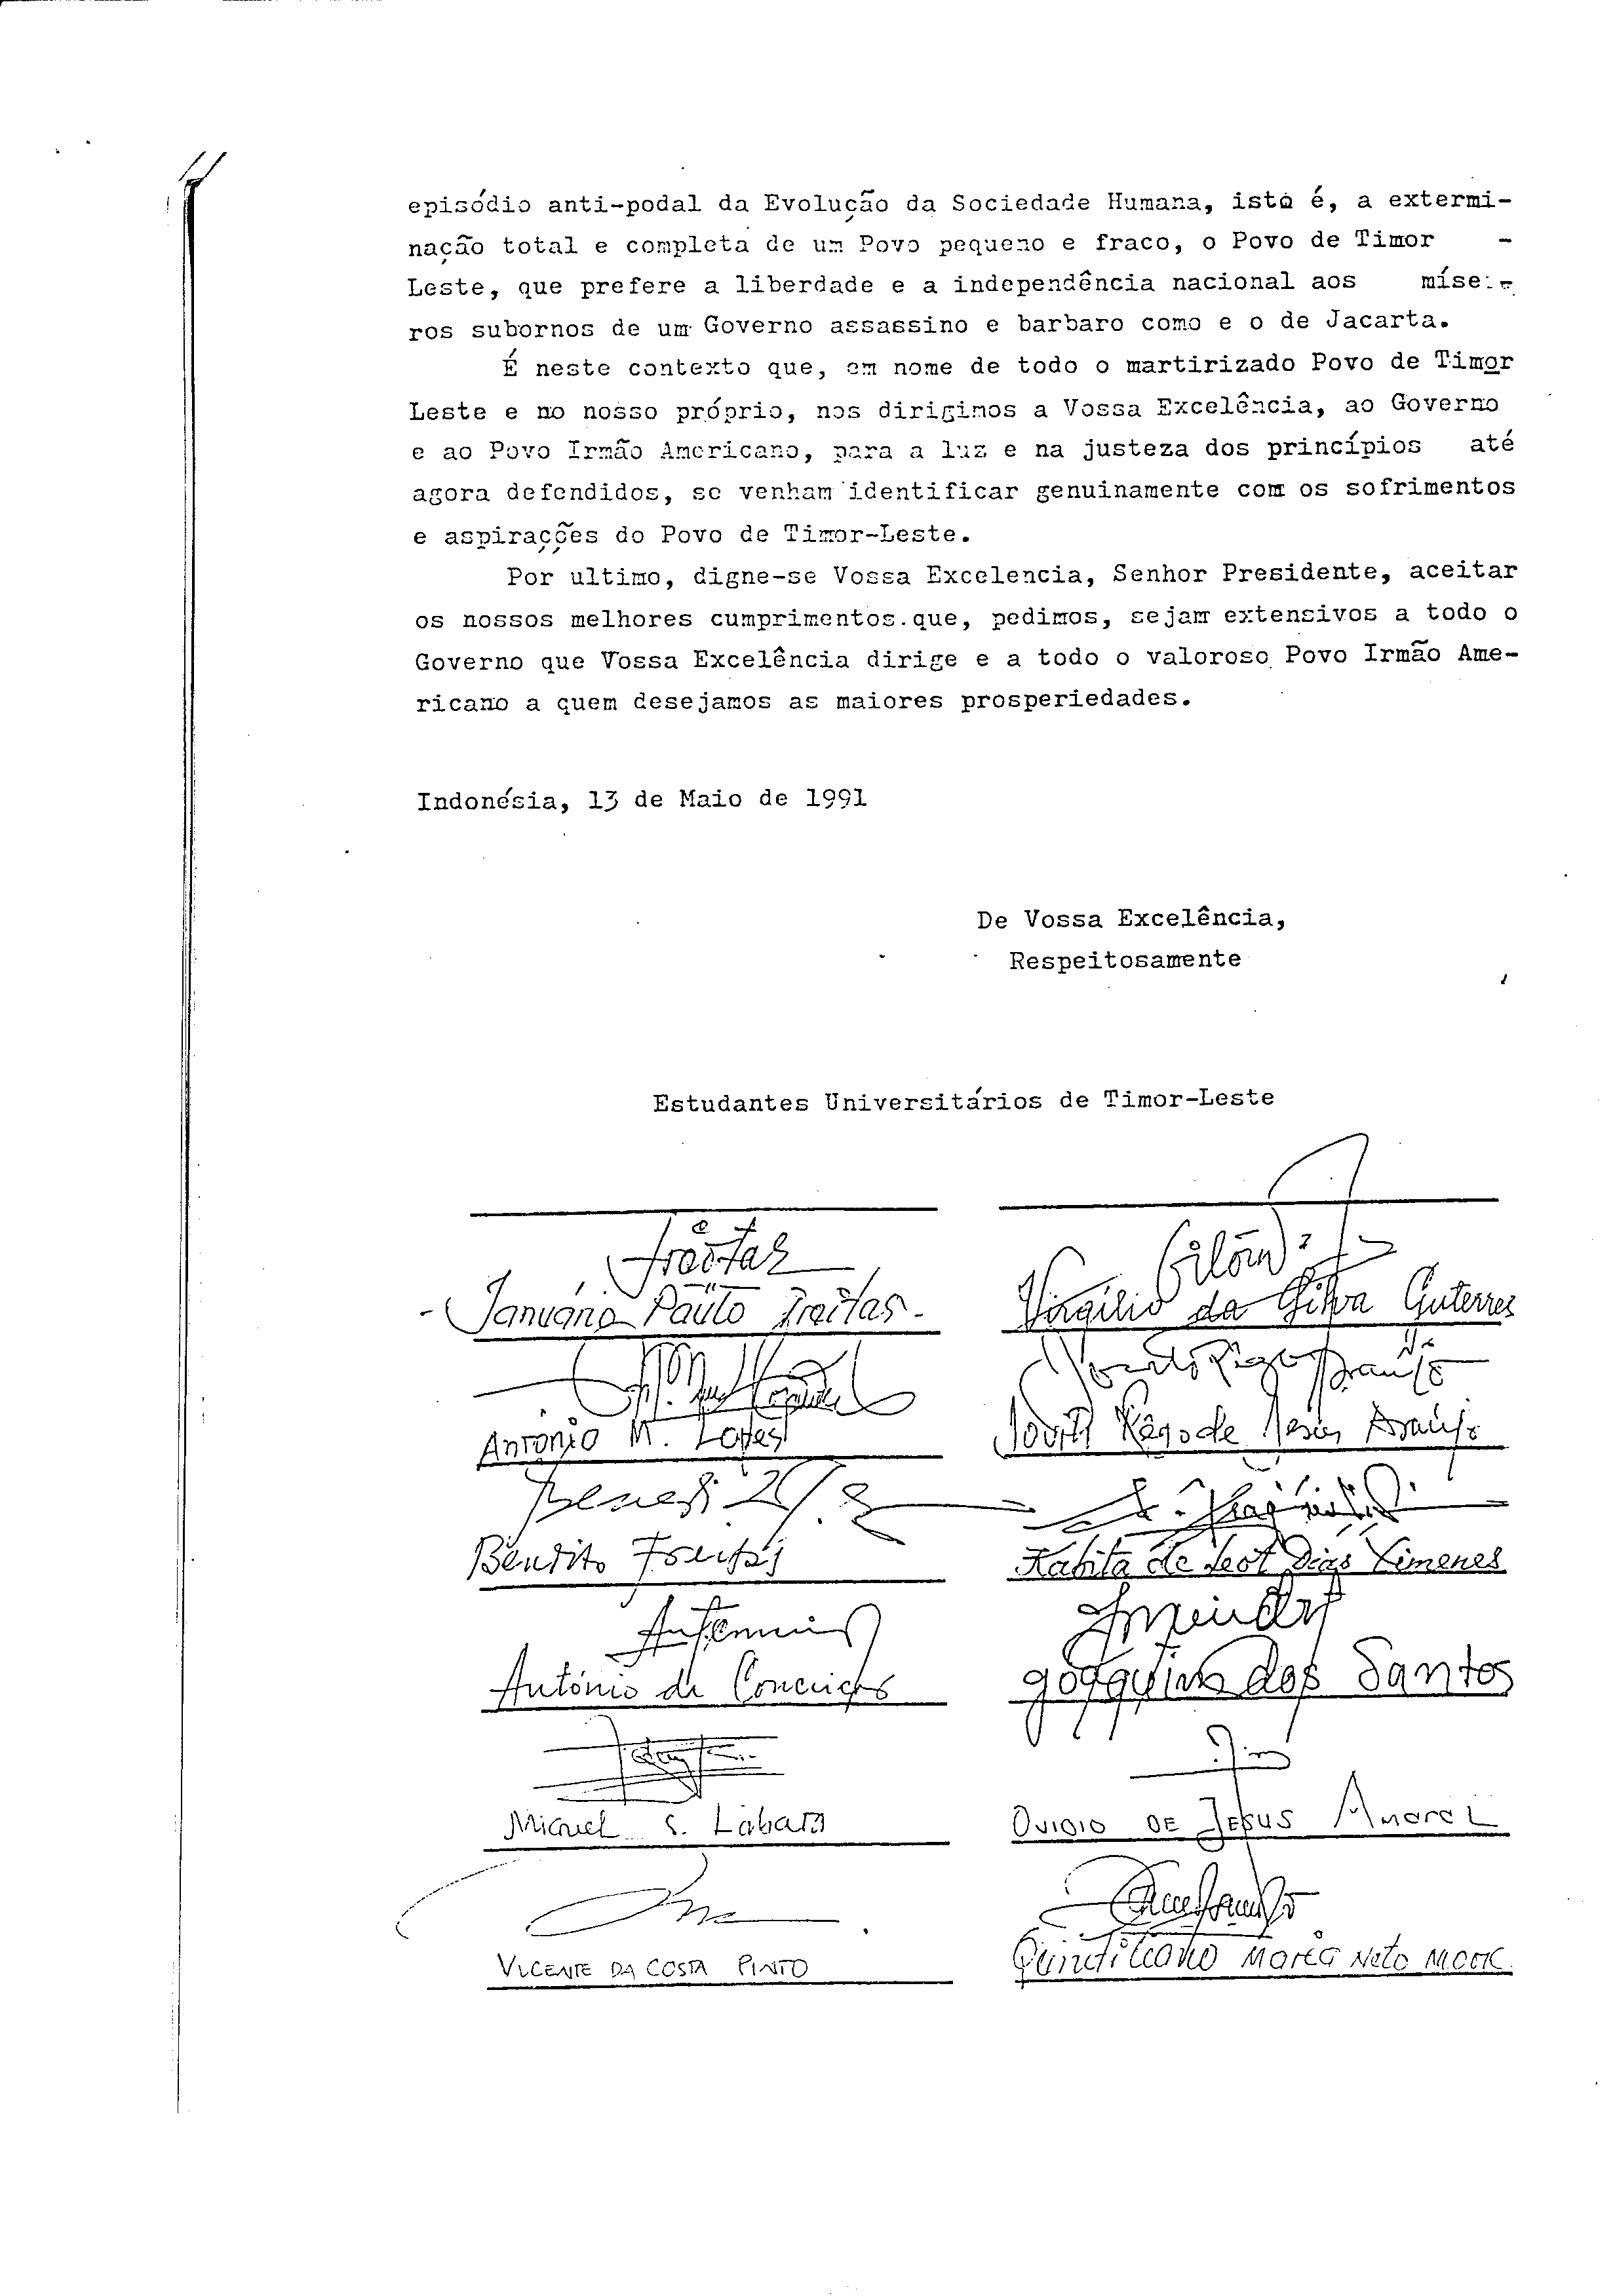 episódio anti-podal da Evolução da Sociedade Humana, isto é, a extermi-
nação total e completa de um Povo pequeno e fraco, o Povo de Timor -
Leste, que prefere a liberdade e a independência nacional aos míse-
ros subornos de um Governo assassino e barbaro como e o de Jacarta.
É neste contexto que, em nome de todo o martirizado Povo de Timor
Leste e no nosso próprio, nos dirigimos a Vossa Excelência, ao Governo
e ao Povo Irmão Americano, para a luz e na justeza dos princípios até
agora defendidos, se venham identificar genuinamente com os sofrimentos
e aspirações do Povo de Timor-Leste.
Por ultimo, digne-se Vossa Excelencia, Senhor Presidente, aceitar
os nossos melhores cumprimentos que, pedimos, sejam extensivos a todo o
Governo que Vossa Excelência dirige e a todo o valoroso Povo Irmão Ame-
ricano a quem desejamos as maiores prosperiedades.
Indonésia, 13 de Maio de 1991
De Vossa Excelência,
Respeitosamente
Estudantes Universitários de Timor-Leste
Januário Paulo Freitas
Virgílio da Silva Guterres
António M. Lopes
Rêgo de Jesus Araújo
Bendito Freitas
Dias Ximenes
António da Conceição
Joaquim dos Santos
Miguel S.
Ovidio de Jesus Amaral
VICENTE DA COSTA PINTO
Neto